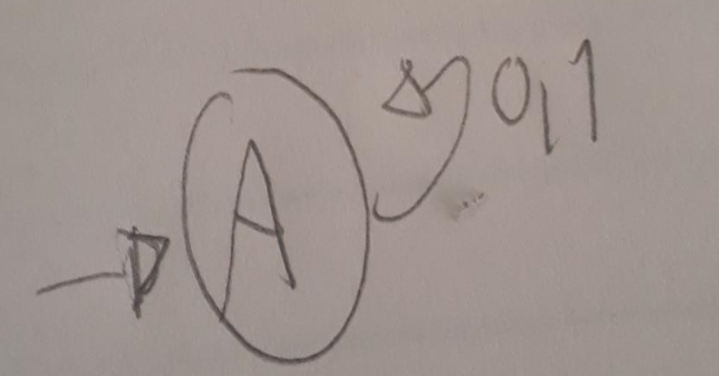 A
0,1